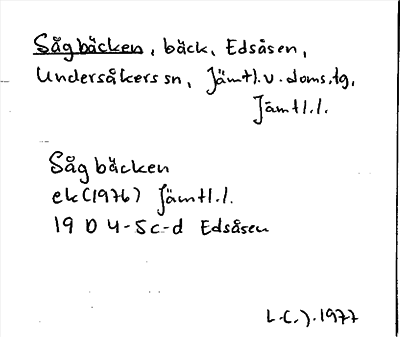 Sågbäcken, bäck, Edsåsen,
Undersåkers sn, Jämtl. v. doms.tg,
Jämtl.l.
Sågbäcken
ek (1976) Jämtl.l.
19 D 4-5 c-d Edsåsen
L.C.J. 1977